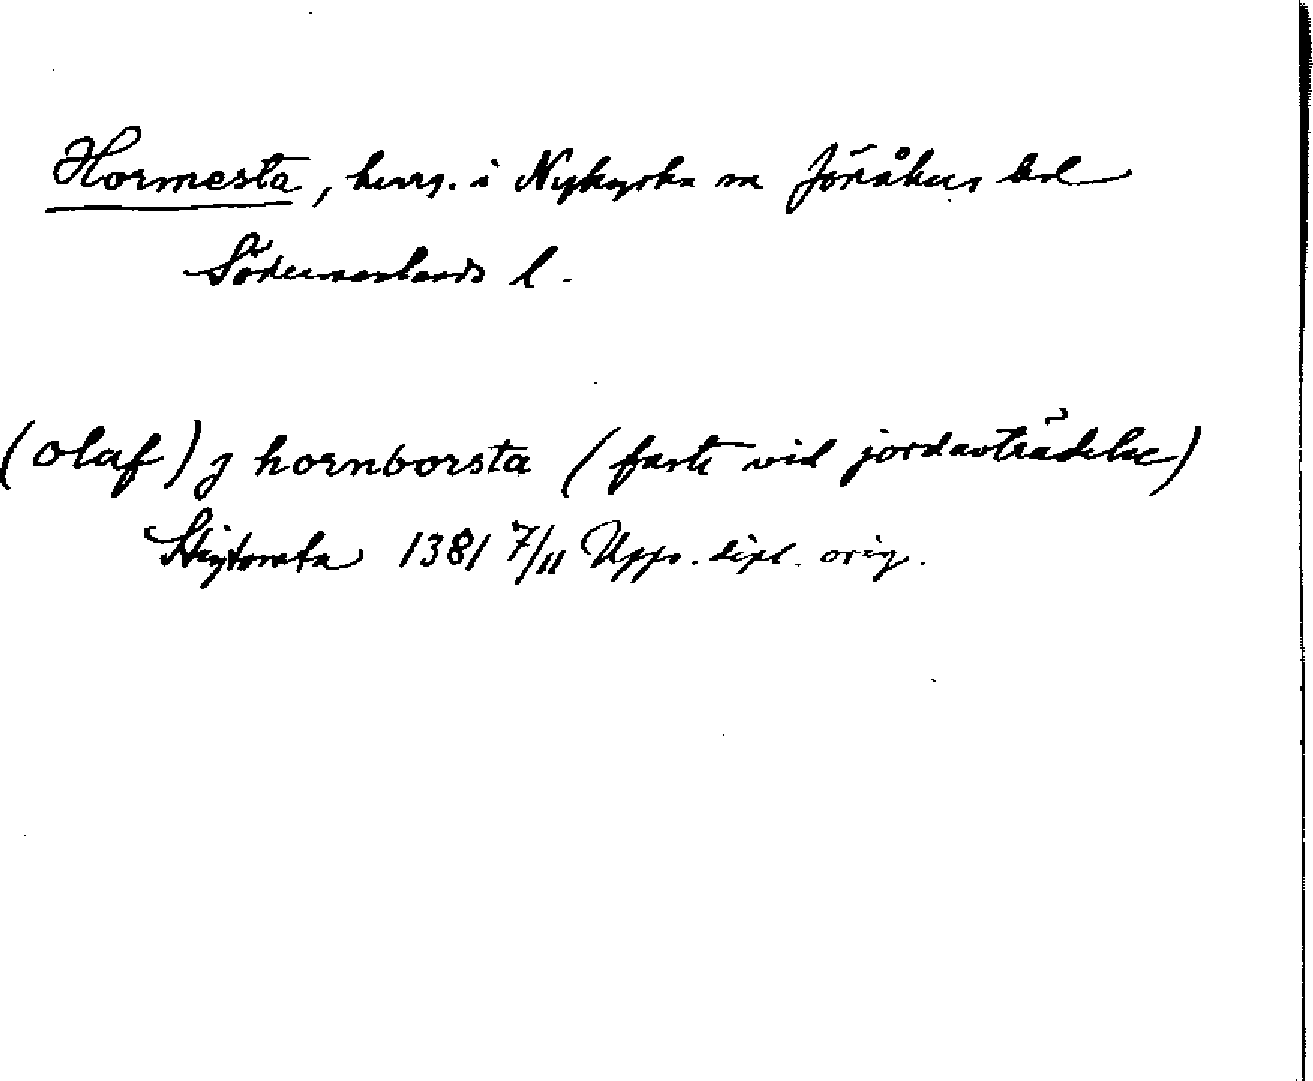 Hormesta, herrg. i Nykyrka sn Jönåkers hd
Södermanlands l.
(olaf) j hornborsta (faste vid jordavträdelse)
Stigtomta 1381 7/11 Upps. dipl. orig.